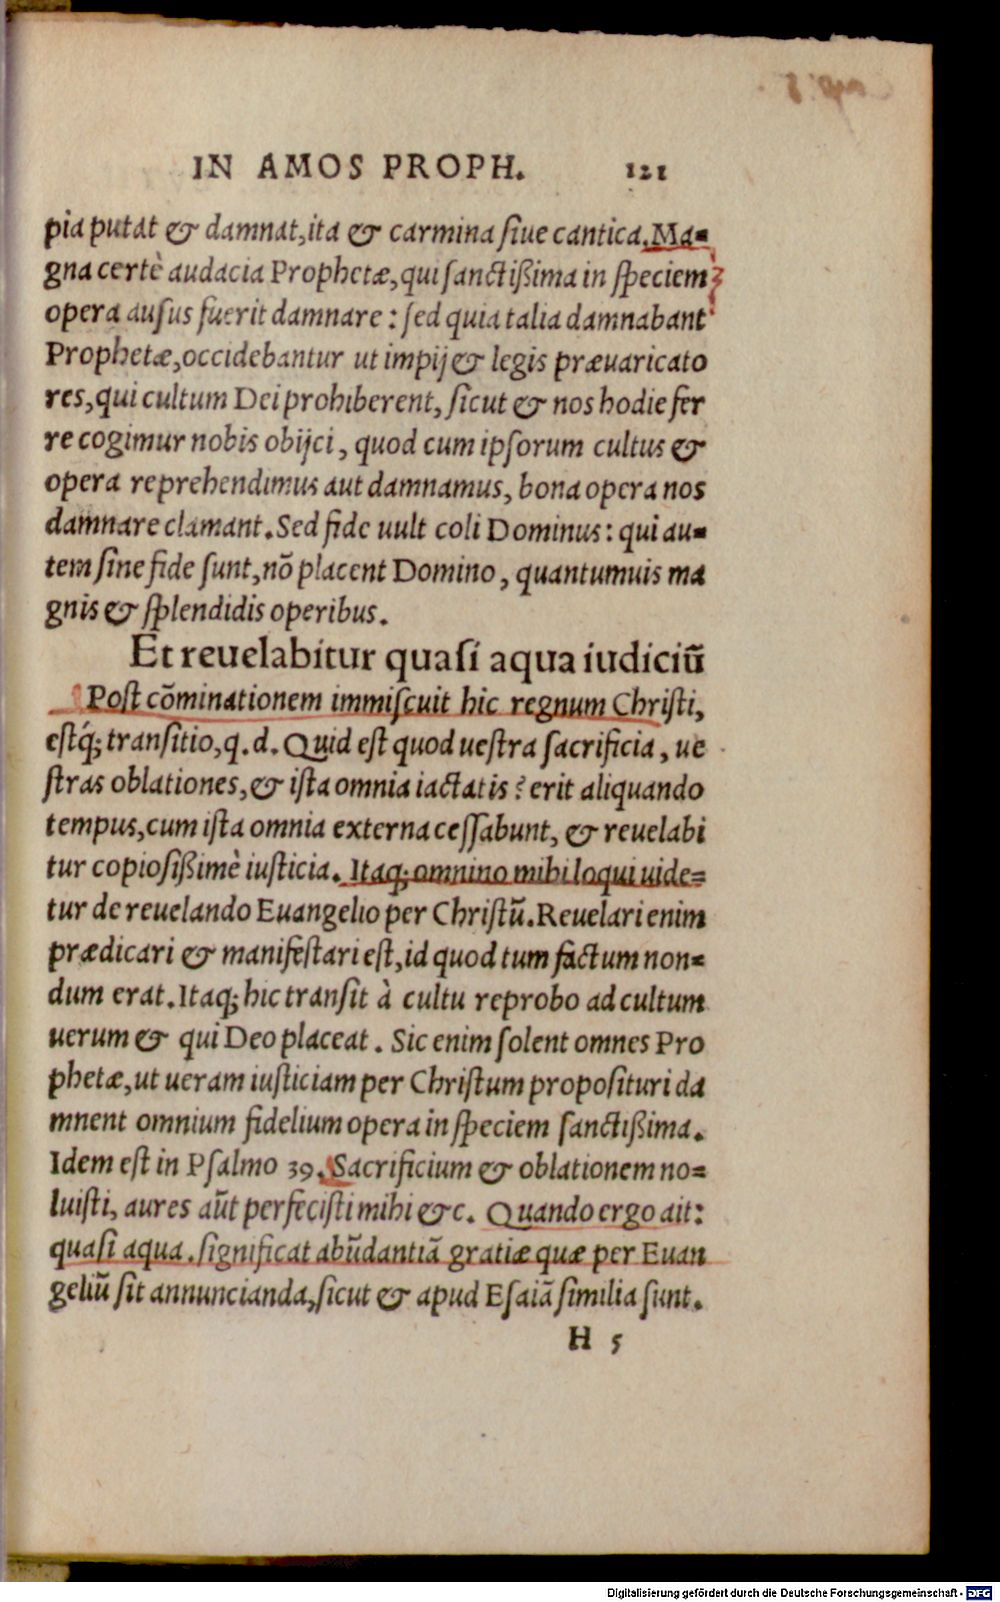 IN AMOS PROPH. 121
pia putat & damnat, ita & carmina ſiue cantica. Ma=
gna certè audacia Prophetæ, qui ſanctißima in ſpeciem
opera auſus fuerit damnare: ſed quia talia damnabant
Prophetæ, occidebantur ut impij & legis præuaricato
res, qui cultum Dei prohiberent, ſicut & nos hodie fer
re cogimur nobis obijci, quod cum ipſorum cultus &
opera reprehendimus aut damnamus, bona opera nos
damnare clamant. Sed fide uult coli Dominus: qui au=
tem ſine fide ſunt, nõ placent Domino, quantumuis ma
gnis & ſplendidis operibus.
Et reuelabitur quaſi aqua iudiciũ
Poſt cõminationem immiſcuit hic regnum Chriſti,
eſtq́; tranſitio, q. d. Quid eſt quod ueſtra ſacrificia, ue
ſtras oblationes, & iſta omnia iactatis? erit aliquando
tempus, cum iſta omnia externa ceſſabunt, & reuelabi
tur copioſißimè iuſticia. Itaq; omnino mihi loqui uide=
tur de reuelando Euangelio per Chriſtũ. Reuelari enim
prædicari & manifeſtari eſt, id quod tum factum non=
dum erat. Itaq; hic tranſit à cultu reprobo ad cultum
uerum & qui Deo placeat. Sic enim ſolent omnes Pro
phetæ, ut ueram iuſticiam per Chriſtum propoſituri da
mnent omnium fidelium opera in ſpeciem ſanctißima.
Idem eſt in Pſalmo 39. Sacrificium & oblationem no=
luiſti, aures aũt perfeciſti mihi &c. Quando ergo ait:
quaſi aqua. ſignificat abũdantiã gratiæ quæ per Euan
geliũ ſit annuncianda, ſicut & apud Eſaiã ſimilia ſunt.
H 5
Digitalisierung gefördert durch die Deutsche Forschungsgemeinschaft - DFG